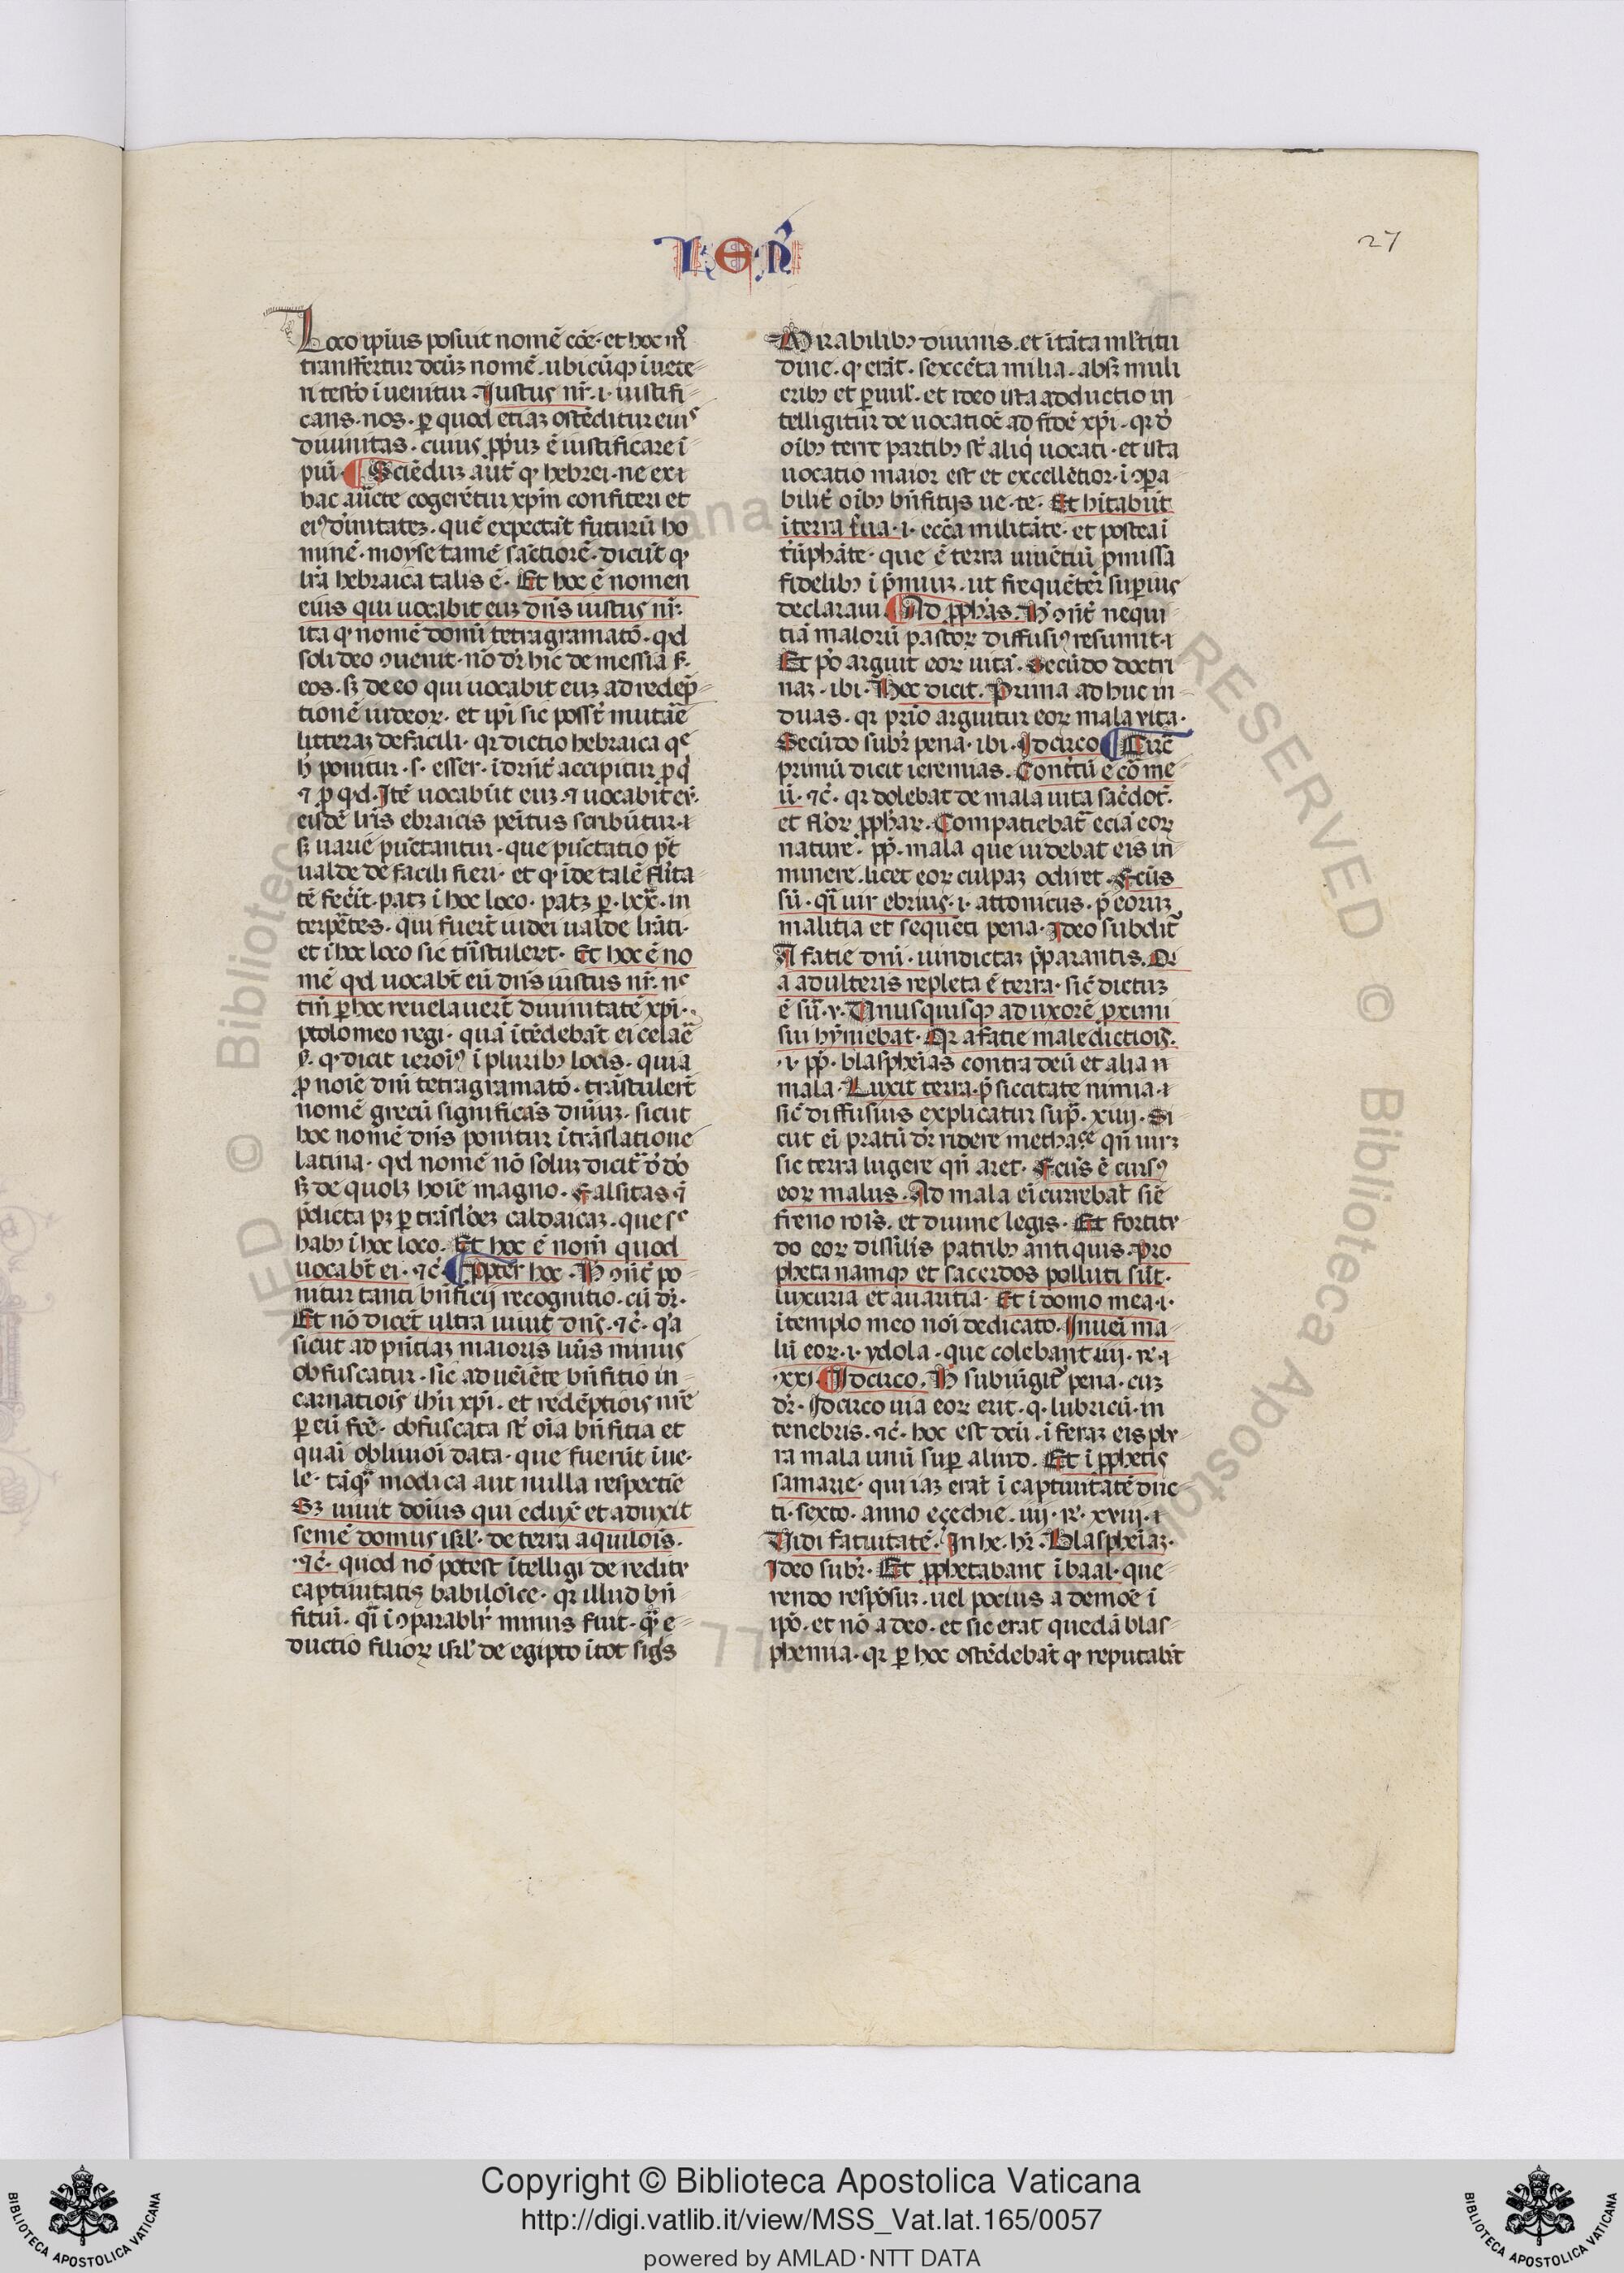 IER̃
27
Loco ipius posuit nomẽ cõe · et hoc mͦ
transfertur dicũz nomẽ · ubicũq̃ i uete-
ri testõ i uenitur · Iustus nr̃ · i · iustifi-
cans · nos · ꝑ quod etiaz ostẽditur eius
diuinitas · cuius ꝓpuz ẽ iustificare i
piũ · ¶ Sciẽduz aut̃ ꝙ hebrei · ne ex i
hac auc̃te cogerẽtur xp̃m confiteri et
eiꝰ diĩnitatez · quẽ expectãt futurũ ho
minẽ · moyse tamẽ sãctiorẽ · dicũt ꝙ
lr̃a hebraica talis ẽ · Et hoc ẽ nomen
eius qui uocabit euz dñs iustus nr̃ ·
ita ꝙ nomẽ domĩ tetragramatõ · qd
soli deo ↄuenit · nõ dr̃ hic de messia ẜ ·
eos · sꝫ de eo qui uocabit euz ad redẽp-
tionẽ iudeoꝝ · et ip̃i sic possũt mutar̃e
litteraz de facili · qr dictio hebraica qᵉ
h̃ ponitur · s · esser · idr̃ñt accipitur ꝓ q̃
⁊ ꝓ qd · Itẽ uocabũt euz · ⁊ uocabit er̃ ·
eisdẽ lr̃is ebraicis peñitus scribũtur · i
sꝫ uarie pũctantur · que pũctatio põt
ualde de facili fieri · et ꝙ ide talẽ flr̃ita-
tẽ fec̃it · patꝫ i hoc loco · patꝫ ꝑ · lxx̃ · in
terpr̃etes · qui fuer̃t iudei ualde lr̃ati ·
et i hoc loco sic trãstuler̃t · Et hoc ẽ no
mẽ qd uocabt̃ eũ dñs iustus nr̃ · nᵉ
tm̃ ꝑ hoc reuelauer̃t diuinitatẽ xp̃i ·
ptolomeo regi · quã itẽdebãt ei celar̃e
ẜ · ꝙ dicit ieroĩꝰ i pluribꝫ locis · quia
ꝓ noĩe dñi tetragramatõ · trãstuler̃t
nomẽ grecũ significãs dñiuz · sicut
hoc nomẽ dñs ponitur i trãslatione
latina · qd nomẽ nõ soluz dicit̃ d̃ dõ
sꝫ de quolꝫ hoĩe magno · Falsitas ĩ
p̃dicta pꝫ ꝑ trãslõez caldaicaz · que sᵉ
habꝫ i hoc loco · Et hoc ẽ nom̃ quod
uocabt̃ ei · ⁊c̃ · ¶ Ꝓpter hoc · H̃ ↄñt̃ po
nitur tanti bñficij recognitio · cũ dr̃ ·
Et nõ dicet̃ ultra uiuit dñs · ⁊c̃ · qr̃a
sicut ad pñtiaz maioris luĩs minus
obfuscatur · sic aduẽiẽte bñfitio in-
carnatiois̃ ihũ xp̃i · et redẽptiois̃ nr̃e
ꝑ eũ fc̃e · obfuscata st̃ oĩa bñfitia et
quasi obliuioĩ data · que fuerũt i ue-
le · tãq̃ modica aut nulla respectie
Sꝫ uiuit doĩus qui eduxit̃ et aduxit
semẽ domus isrl̃ · de terra aquilois̃ ·
· ⁊c̃ · quod nõ potest itelligi de reditu
captiuitatis babiloĩce · qr illud bñ
fitiũ · qĩ i ↄparablr̃ minus fuit · q̃ e-
ductio filioꝝ isrl̃ de egipto i tot sigs̃
Mirabilibꝫ diuinis · et i tãta ml̃titu
dine · ꝙ erãt · sexcẽta milia · absqꝫ muli
eribꝫ et ꝑuul̃ · et ideo ista adductio in
telligitur de uocatioẽ ad fidẽ xp̃i · qr d̃
oĩbꝫ terre partibꝫ st̃ aliq̃ uocati · et ista
uocatio maior est et excellẽtior · i ↄpa
bilit̃ oĩbꝫ bñfitijs ue · te · Et hĩtabũt
i terra sua · i · ecc̃a militãte · et postea i
tr̃iũphãte · que ẽ terra uiuẽtiũ ꝓmissa
fidelibꝫ i p̃miuz · ut frequẽter̃ superius
declaraui · ¶ Ad ꝓph̃as · H̃ ↄñt̃ nequi
tiã maloꝝ pastoꝝ diffusiꝰ resumit · i
Et põ arguit eoꝝ uitã · Secũdo doctri
naz · ibi · Hec dicit · Prima adhuc in-
duas · qr prĩo arguitur eoꝝ mala vita ·
Secũdo subr̃ pena · ibi · Idcirco ¶ Circ̃
primũ dicit ieremias · Contr̃tũ ẽ cõr me
ũ · ⁊c̃ · qr dolebat de mala uita sac̃dot̃ ·
et flõꝝ ꝓph̃aꝝ · Compatiebat̃ eciã eoꝝ
nature · ꝓp̃ · mala que uidebat eis in
minere · licet eoꝝ culpaz odiret · Fc̃us
sũ · qĩ uir ebrius · i · attonicus · p̃ eoruz
malitia et sequẽti pena · Ideo subdit̃
A fatie dñi · uindictaz p̃parantis · Qr
a adulteris repleta ẽ terra · sic̃ dictuz
ẽ sũ · v · Unusquisqꝫ ad uxorẽ ꝓximi
sui hỹniebat · Qr a fatie maledictiois̃ ·
· i · ꝓp̃ · blasphẽias contra deũ et alia ñ
mala · Luxit terra · p̃ siccitate nimia · i
sic̃ diffusius explicatur sup̃ · xiiij · Si
cut ei pratũ dr̃ ridere methaᶜᵉ qñ uirꝫ
sic terra lugere qñ aret · Fc̃us ẽ cursꝰ
eoꝝ malus · Ad mala ei currebãt sĩe
freno rõis̃ · et diuine legis · Et fortitu
do eoꝝ dissilĩs patribꝫ antiquis · Pro
pheta namqꝫ et sacerdos polluti sũt ·
luxuria et auaritia · Et i domo mea · i ·
i templo meo noĩ dedicato · Inueĩ ma
lũ eoꝝ · i · ydola · que colebant · iiij · r̃ · i
· xxi · ¶ Idcirco · H̃ subiũgit̃ pena · cuz
dr̃ · Idcirco uia eoꝝ erit · q · lubricũ · in
tenebris · ⁊c̃ · hoc est dcũ · i feraz eis plu
ra mala unũ sup̃ aliud · Et i ꝓphetis
samarie · qui iaz erãt i captiuitatẽ duc
ti · sexto · anno eçechie · iiij · r̃ · xviij · i
Uidi fatuitatẽ · In he · hr̃ · Blasphẽiaz ·
Ideo subr̃ · Et ꝓphetabant i baal · que
rendo respõsuz · uel pocius a demõe i
ip̃o · et nõ a deo · et sic erat quedã blas-
phemia · qr ꝑ hoc ostẽdebãt ꝙ reputabãt
Copyright © Biblioteca Apostolica Vaticana
http://digi.vatlib.it/view/MSS_Vat.lat.165/0057
powered by AMLAD·NTT DATA
BIBLIOTECA APOSTOLICA VATICANA
BIBLIOTECA APOSTOLICA VATICANA